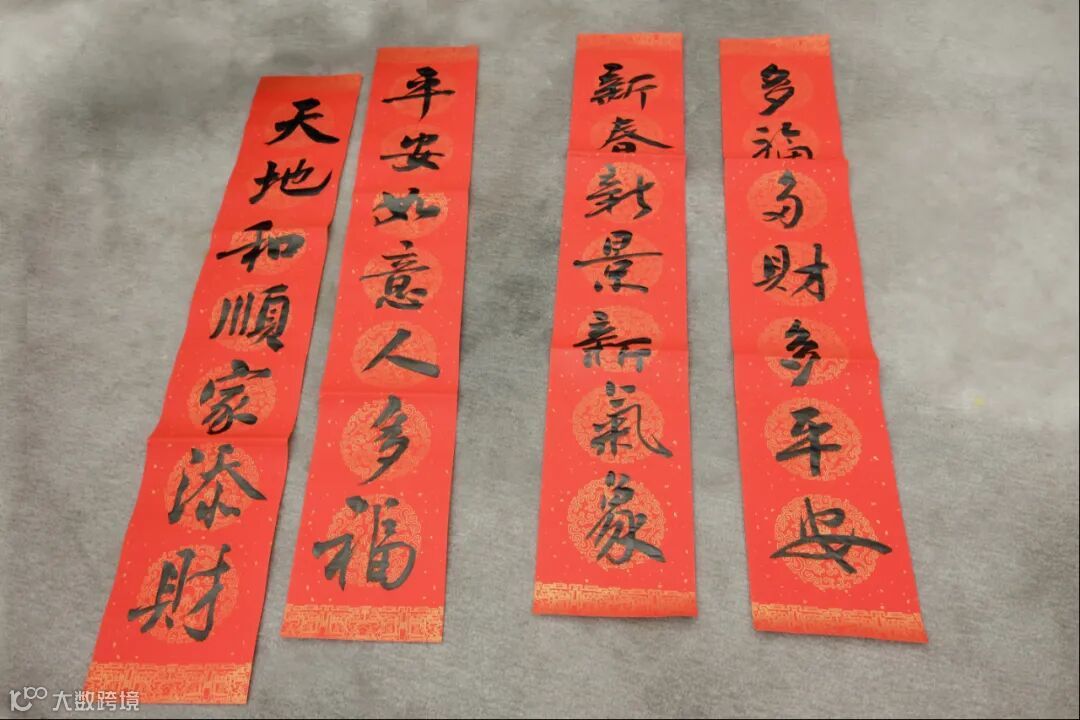 天地和順家添財
平安如意人多福
新春新景新氣象
多福多財多平安
大数跨境